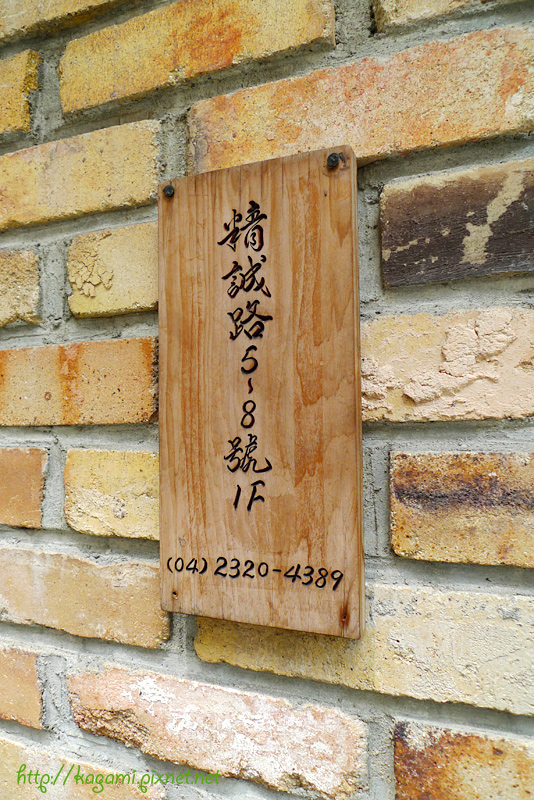 精誠路5~8號1F
(04) 2320-4389
http://kagami.pixnet.net